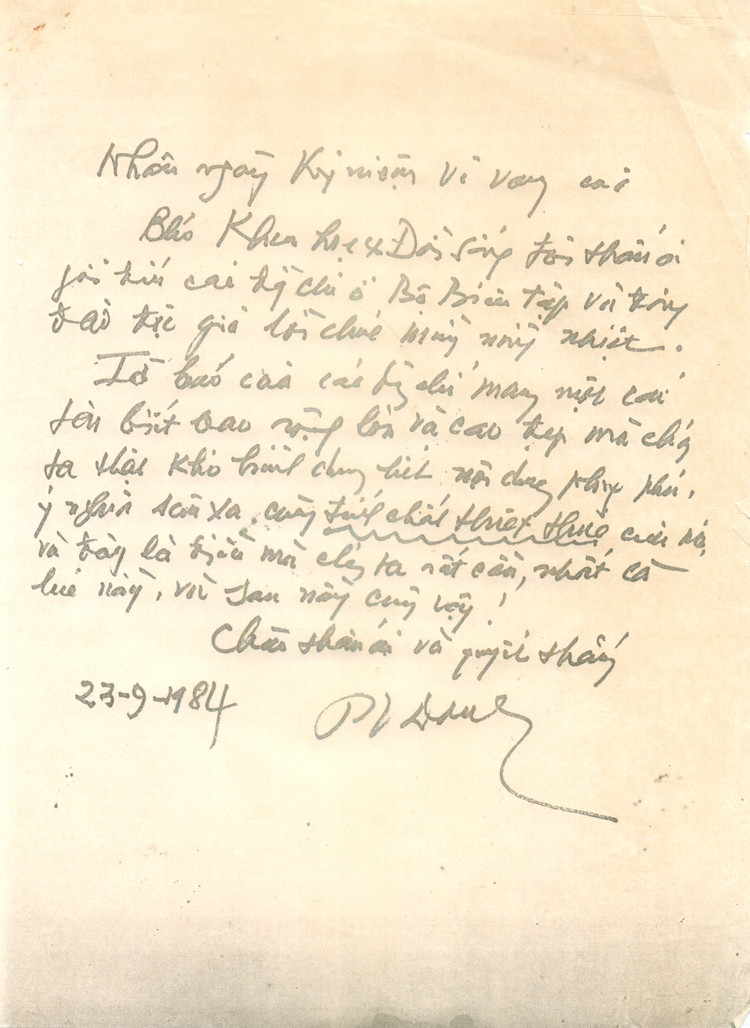 Nhân ngày Kỷ niệm vẻ vang của
Báo Khoa học & Đời sống tôi thân ái
gởi đến các đồng chí ở Bộ Biên tập và đông
đảo độc giả lời chúc mừng nồng nhiệt.
Tờ báo của các đồng chí mang một cái
tên biết bao rộng lớn và cao đẹp mà chúng
ta thật khó hình dung hết nội dung phong phú,
ý nghĩa sâu xa, cùng tính chất thiết thực của nó,
và đây là điều mà chúng ta rất cần, nhất là
lúc này, và sau này cũng vậy!
Chào thân ái và quyết thắng
23-9-1984